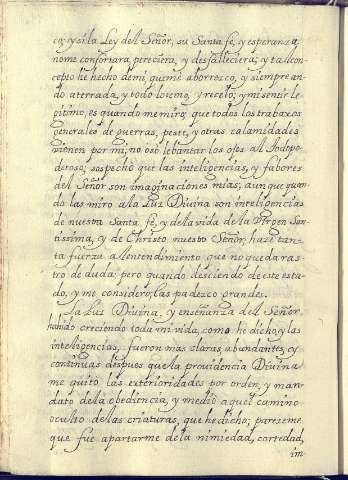 ce; y si la Ley del Señor, su Santa fe, y esperanza
nome confortara, pereciera, y desfalleciera; y tal con-
cepto he hecho demi, queme aborrezco, y siempre an-
do aterrada, y todo lo temo, y recelo; y mi sentir le-
gitimo, es quando me miro, que todos los trabaxos
generales de guerras, peste, y otras calamidades
vienen por mi; no osò lebantar los ojos al Todopo-
deroso; sospechò que las inteligencias, y fabores
del Señor son imaginaciones mias; aunque quan-
do las miro a la Luz Divina son inteligencias
de nuestra Santa fe, y de la vida de la Virgen San-
tissima, y de Christo nuestro Señor, haze tan-
ta fuerza al entendimiento que no queda ras-
tro de duda; pero quando desciendo de este esta-
do, y me considero, las padezco grandes.
La Luz Divina, y enseñanza del Señor
habido creciendo toda mi vida, como he dicho, y las
inteligencias, fueron mas claras, abundantes, y
continuas despues que la providencia Divina
me quitò las exterioridades por orden, y man-
dato de la obediencia, y mediò aquel camino
oculto de las criaturas, que he dicho; pareceme
que fue apartarme de la nimiedad, cortedad,
im